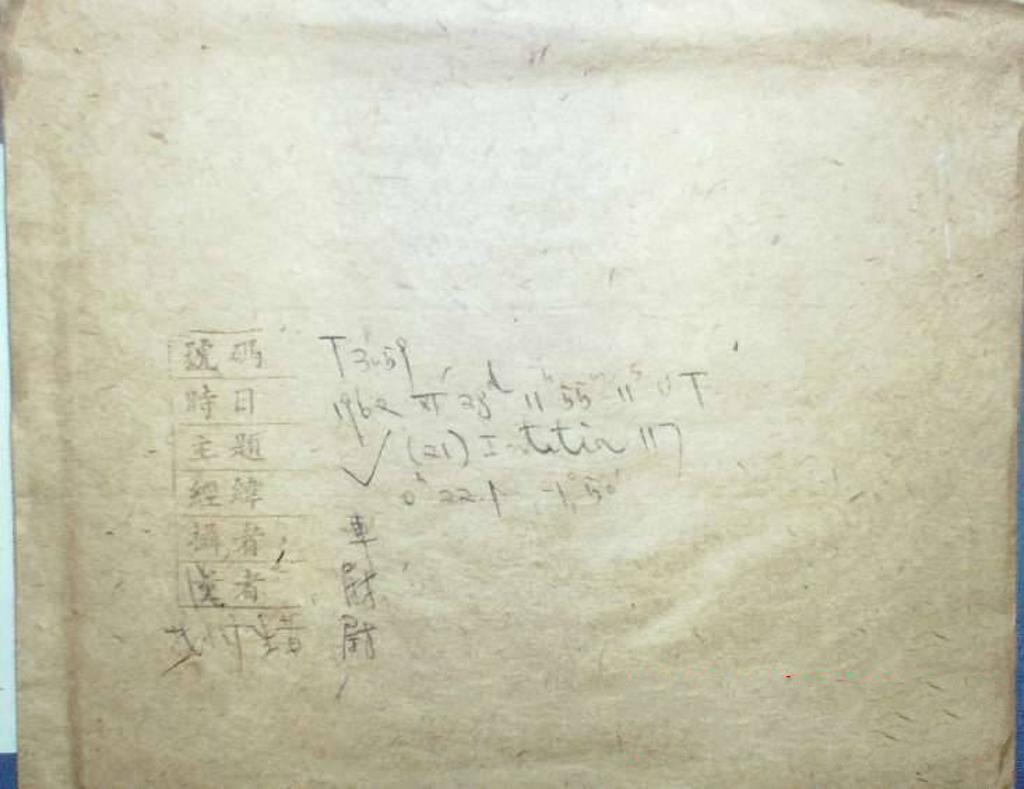 號碼 T 3259
時日 1962 XI 28d 11h 55m 11s UT
主題 ✓ (21) Lutetia 117
經緯 0h 22m.1 -1°50'
攝者 車
者 尉
尉